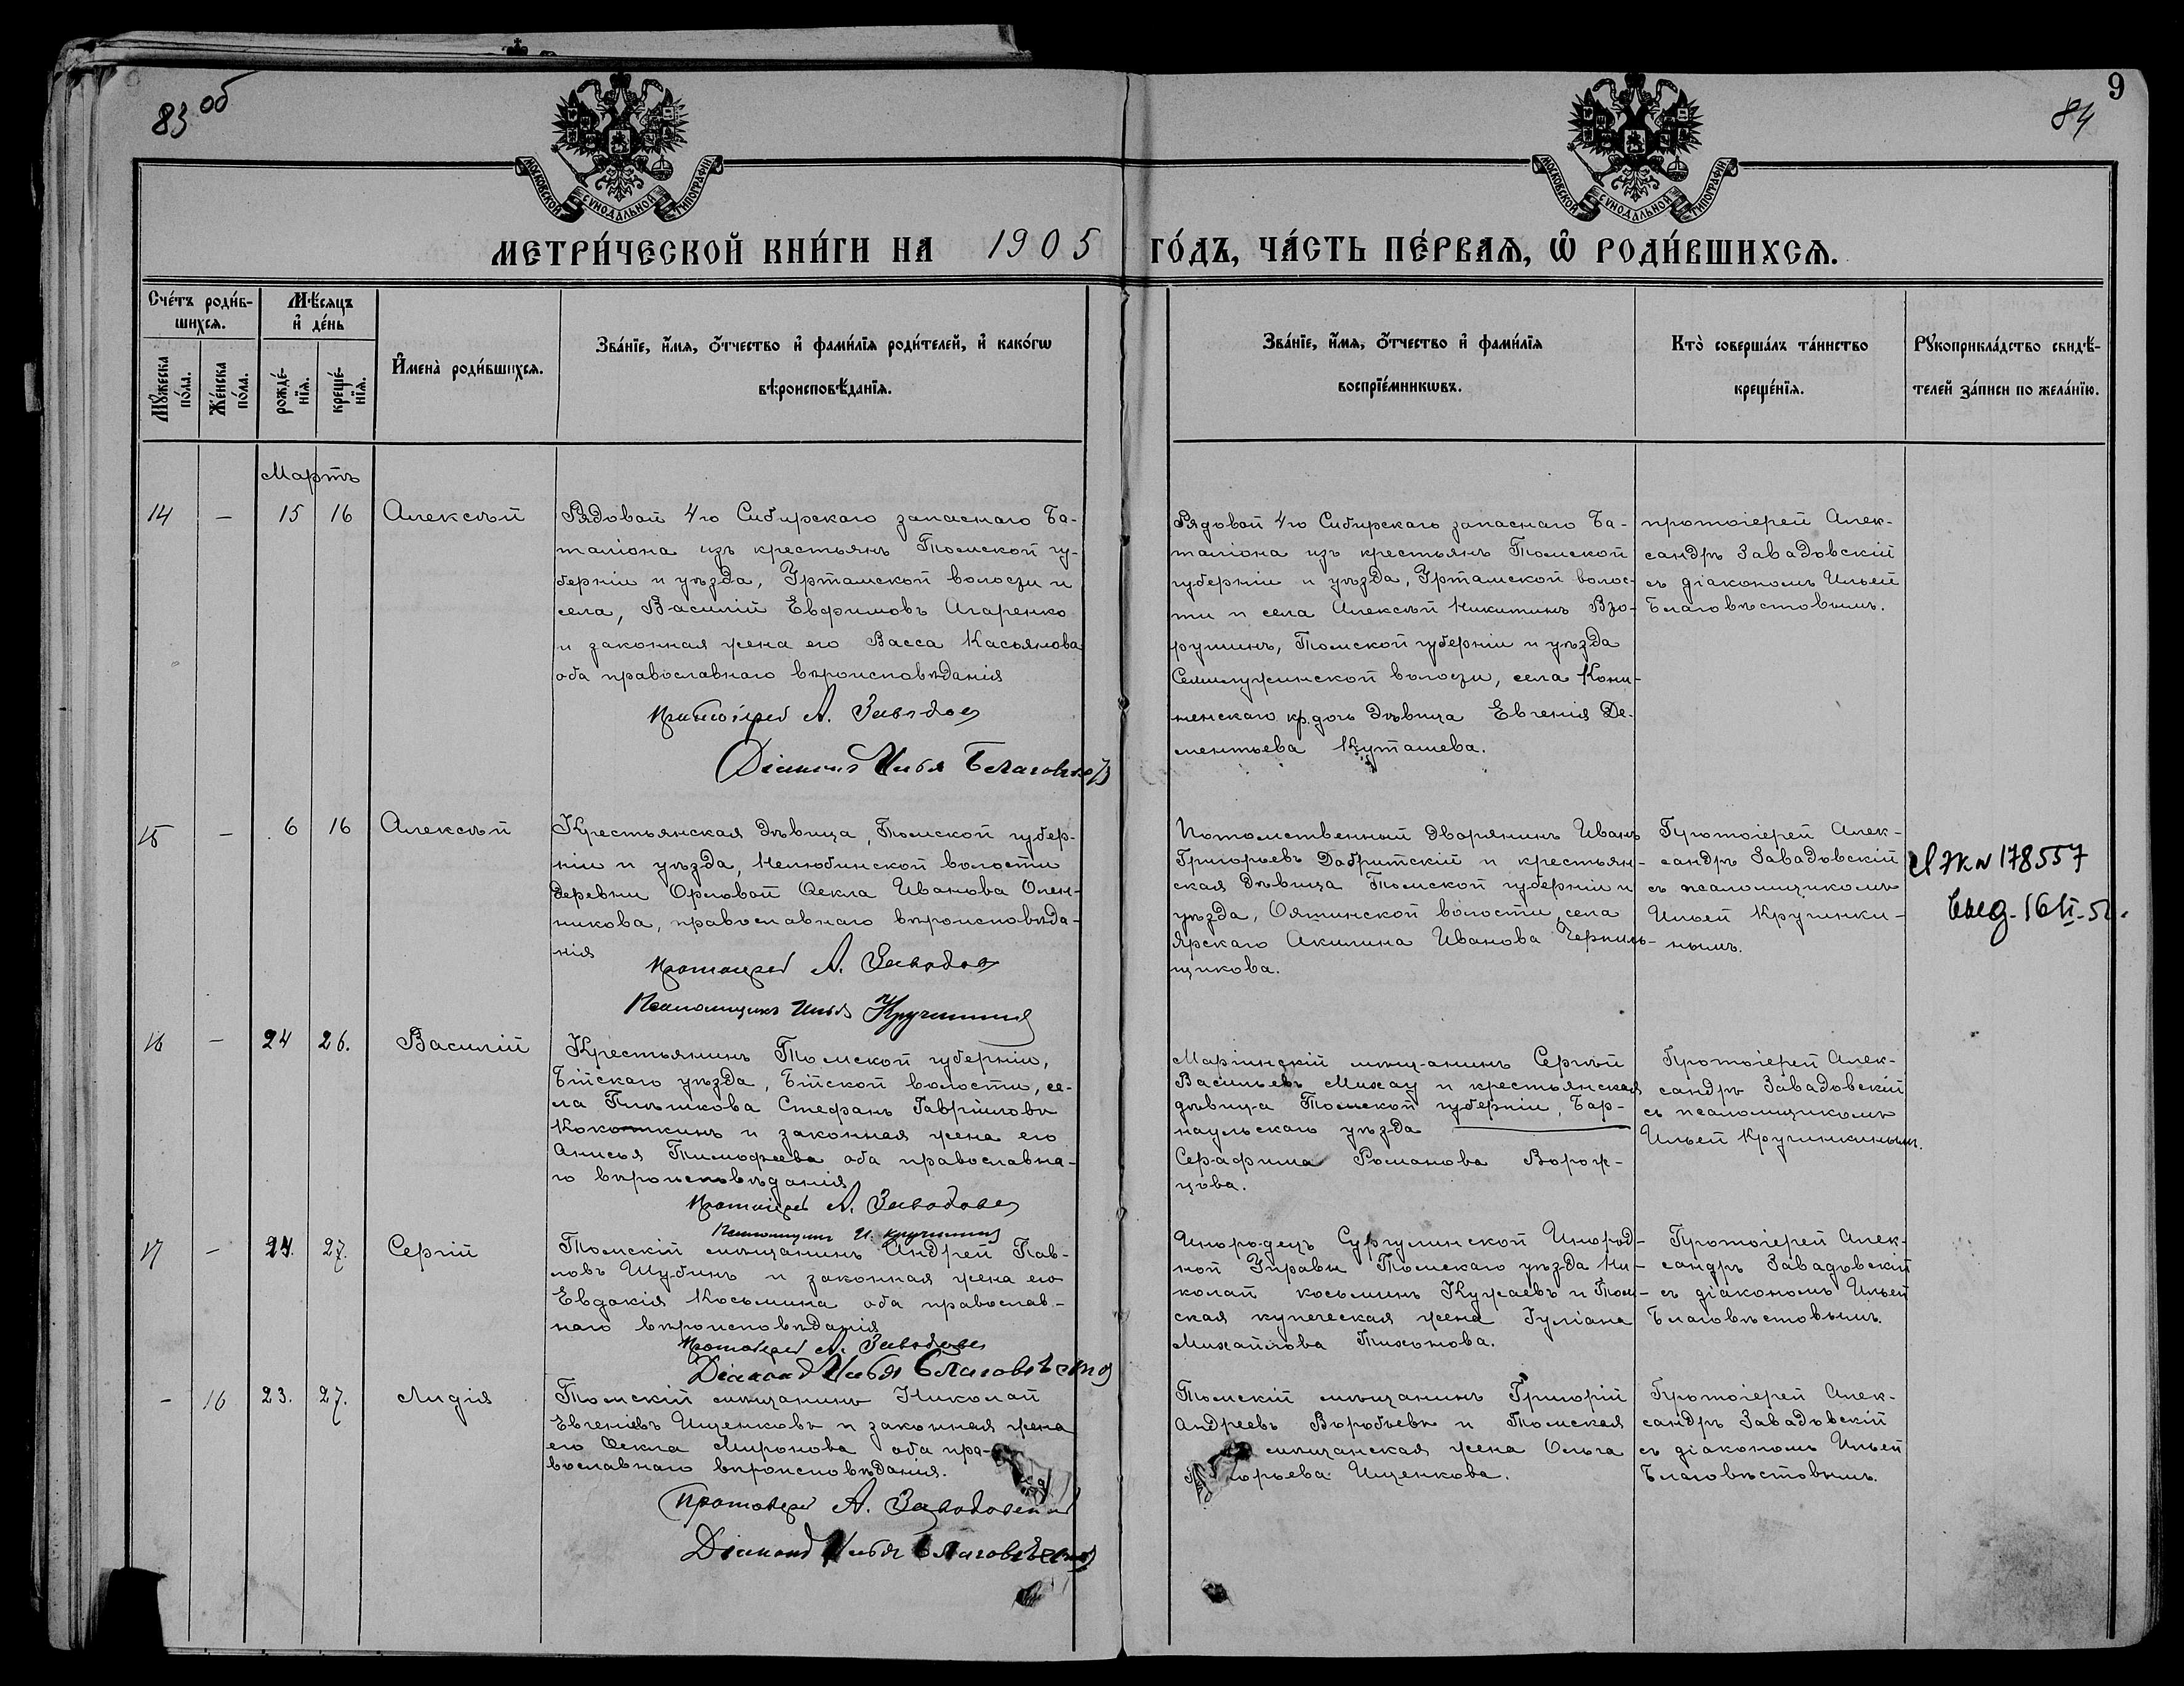 83 об
9
84
МОСКОВСКОЙ СѴНОДАЛЬНОЙ ТИПОГРАФІИ
МОСКОВСКОЙ СѴНОДАЛЬНОЙ ТИПОГРАФІИ
МЕТРИ́ЧЕСКОЙ КНИ́ГИ НА 1905 ГО́ДЪ, ЧА́СТЬ ПЕ́РВАЯ, Ѡ РОДИ́ВШИХСЯ.
Сче́тъ роди́в-
шихся.
Мꙋ́жеска по́ла.
Же́нска по́ла.
Мѣ́сяцъ
и҆ де́нь
рожде́-
нїя.
креще́-
нїя.
И҆мена̀ роди́вшихся.
Зва́нїе, и҆́мя, ѻ҆́тчество и҆ фами́лїя роди́телей, и҆ како́гѡ
вѣроисповѣ́данїя.
Зва́нїе, и҆́мя, ѻ҆́тчество и҆ фами́лїя
воспрїе́мникѡвъ.
Кто̀ соверша́лъ та́инство
креще́нїя.
Рꙋкоприкла́дство свидѣ́-
телей за́писи по жела́нїю.
Мартъ
14 - 15 16 Алексѣй
Рядовой 4го Сибирскаго запаснаго Ба-
таліона изъ крестьянъ Томской гу-
берніи и уѣзда, Уртамской волости и
села, Василій Евфимовъ Агаренко
и законная жена его Васса Касьянова
оба православнаго вѣроисповѣданія
Протоіерей А. Завадов
Діаконъ Илья Благовѣс
Рядовой 4го Сибирскаго запаснаго Ба-
таліона изъ крестьянъ Томской
губерніи и уѣзда, Уртамской волос-
ти и села Алексѣй Никитинъ Взо-
руминъ, Томской губерніи и уѣзда
Семилужинской волости, села Кони-
ненскаго кр. дочь дѣвица Евгенія Де-
ментьева Куташева.
протоіерей Алек-
сандръ Завадовскій
съ діакономъ Ильей
Благовѣстовымъ.
15 - 6 16 Алексѣй
Крестьянская дѣвица, Томской губер-
ніи и уѣзда, Нелюбинской волости
деревни Орловой Ѳекла Иванова Олен-
никова, православнаго вѣроисповѣда-
нія
Протоіерей А. Завадов
Псаломщикъ Илья Кручинкинъ
Потомственный дворянинъ Иванъ
Григорьевъ Добритскій и крестьян-
ская дѣвица Томской губерніи и
уѣзда, Ояшинской волости, села
Ярскаго Акилина Иванова Черниль-
щикова.
Протоіерей Алек-
сандръ Завадовскій
съ псаломщикомъ
Ильей Кручинки-
нымъ.
178557
16 - 24 26. Василій
Крестьянинъ Томской губерніи,
Бійскаго уѣзда, Бійской волости, се-
ла Плѣшкова Стефанъ Гавріиловъ
Кокоткинъ и законная жена его
Анисья Тимоѳеева оба православна-
го вѣроисповѣданія
Протоіерей А. Завадовс
Псаломщикъ И. Кручинкинъ
Маріинскій мѣщанинъ Сергѣй
Васильевъ Михау и крестьянская
дѣвица Томской губерніи, Бар-
наульскаго уѣзда
Серафима Романова Ворож-
цова.
Протоіерей Алек-
сандръ Завадовскій
съ псаломщикомъ
Ильей Кручинкинымъ.
17 - 24. 27. Сергій
Томскій мѣщанинъ Андрей Пав-
ловъ Шубинъ и законная жена его
Евдокія Косьмина оба православ-
наго вѣроисповѣданія
Протоіерей А. Завадовс
Діаконъ Илья Благовѣстов
Инородецъ Сургулинской Инород-
ной Управы Томскаго уѣзда Ни-
колай Косьминъ Кужаевъ и Том-
ская купеческая жена Іуліана
Михайлова Тихонова.
Протоіерей Алек-
сандръ Завадовскій
съ діакономъ Ильей
Благовѣстовымъ.
- 16 23. 27. Лидія
Томскій мѣщанинъ Николай
Евгеніевъ Ищенковъ и законная жена
его Ѳекла Миронова оба пра-
вославнаго вѣроисповѣданія.
Протоіерей А. Завадовскій
Діаконъ Илья Благовѣстов
Томскій мѣщанинъ Григорій
Андреевъ Воробьевъ и Томская
мѣщанская жена Ольга
горьева Ищенкова.
Протоіерей Алек-
сандръ Завадовскій
съ діакономъ Ильей
Благовѣстовымъ.